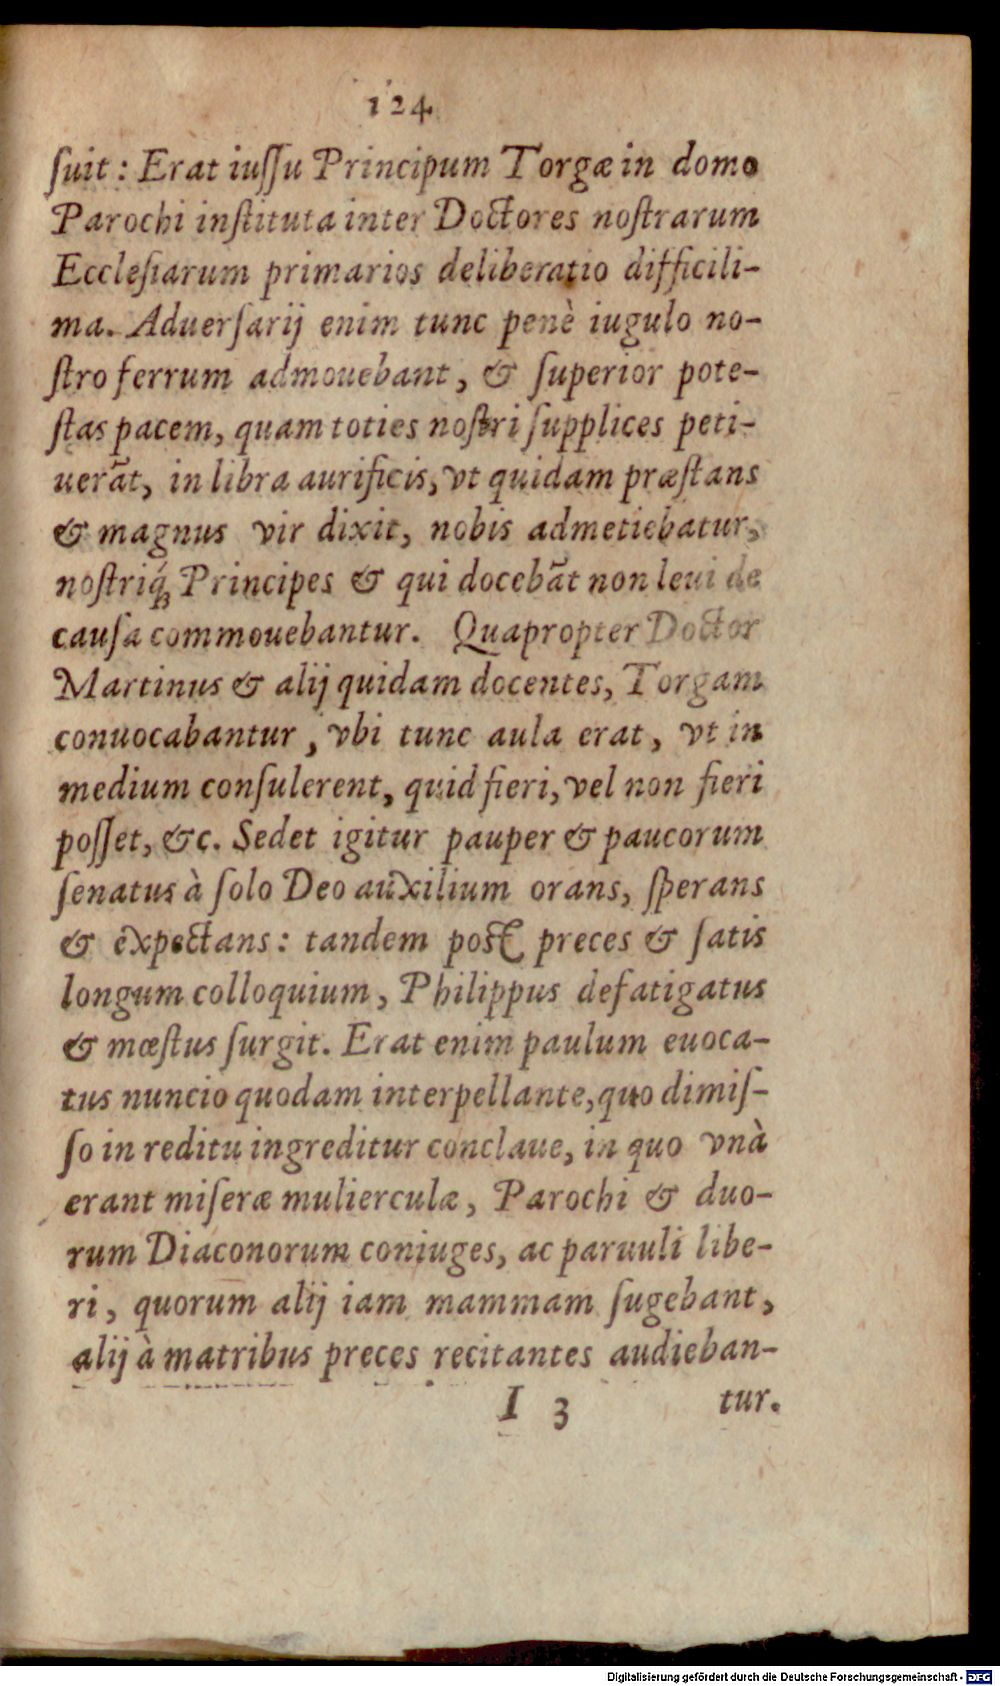 124
ſuit: Erat iuſſu Principum Torgæ in domo
Parochi inſtituta inter Doctores noſtrarum
Eccleſiarum primarios deliberatio difficili-
ma. Aduerſarij enim tunc penè iugulo no-
ſtro ferrum admouebant, & ſuperior pote-
ſtas pacem, quam toties noſtri ſupplices peti-
uerāt, in libra aurificis, vt quidam præſtans
& magnus vir dixit, nobis admetiebatur,
noſtriq́ꝫ Principes & qui docebāt non leui de
cauſa commouebantur. Quapropter Doctor
Martinus & alij quidam docentes, Torgam
conuocabantur, vbi tunc aula erat, vt in
medium conſulerent, quid fieri, vel non fieri
poſſet, &c. Sedet igitur pauper & paucorum
ſenatus à ſolo Deo auxilium orans, ſperans
& expectans: tandem poſt preces & ſatis
longum colloquium, Philippus defatigatus
& mœſtus ſurgit. Erat enim paulum euoca-
tus nuncio quodam interpellante, quo dimiſ-
ſo in reditu ingreditur conclaue, in quo vnà
erant miſeræ mulierculæ, Parochi & duo-
rum Diaconorum coniuges, ac paruuli libe-
ri, quorum alij iam mammam ſugebant,
alij à matribus preces recitantes audieban-
I 3 tur.
Digitalisierung gefördert durch die Deutsche Forschungsgemeinschaft - DFG